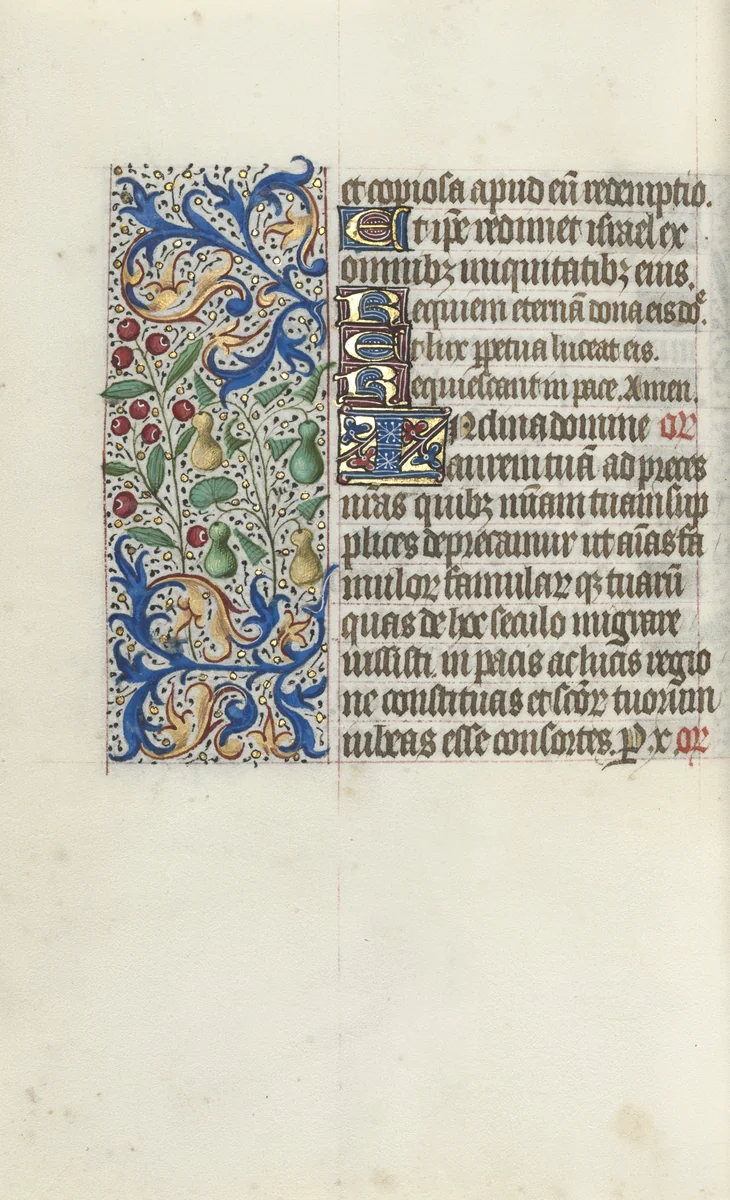 et copiosa apud eū redemptio.
Et ip̄e redimet israel ex
omnibꝫ iniquitatibꝫ eius.
Requiem eternā dona eis doᵉ.
Et lux ꝑpetua luceat eis.
Requiescant in pace. Amen.
Inclina domine or̄
aurem tuā ad preces
nr̄as quibꝫ mīam tuam sup
plices deprecamur ut aīas fa
muloꝝ famulaꝝ qꝫ tuarū
quas de hoc seculo migrare
iussisti. in pacis ac lucis regio
ne constituas et scōꝝ tuorum
iubeas esse consortes. P. x or̄